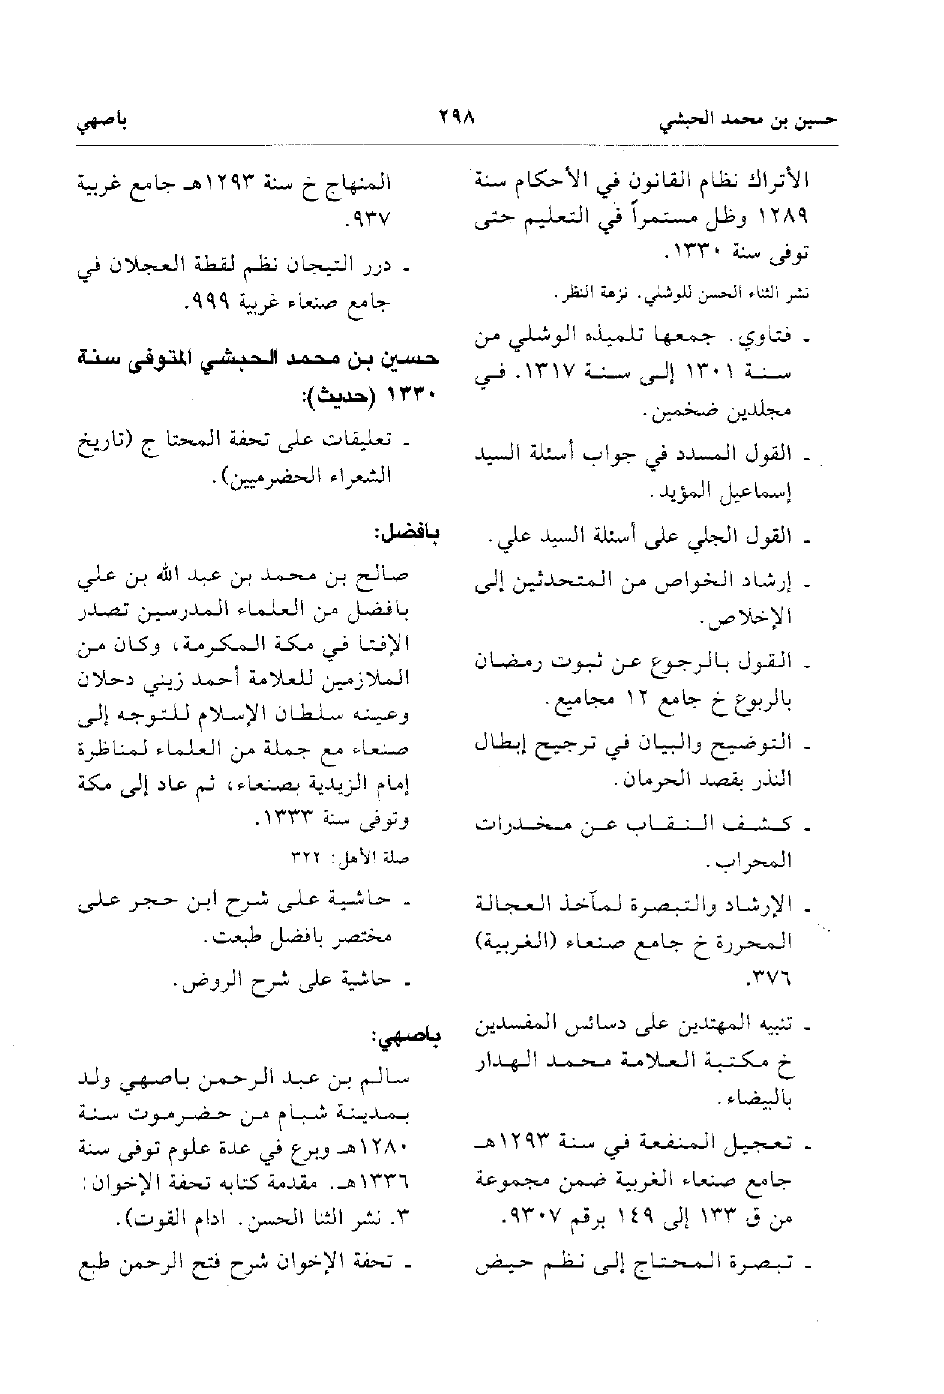 حسين بن محمد الحبشي ٢٩٨ باصهي
الأتراك نظام القانون في الأحكام سنة
١٢٨٩ وظل مستمراً في التعليم حتى
توفى سنة ١٣٣٠.
نشر الثناء الحسن للوشلي. نزهة النظر.
- فتاوي. جمعها تلميذه الوشلي من
سنة ١٣٠١ إلى سنة ١٣١٧. في
مجلدين ضخمين.
- القول المسدد في جواب أسئلة السيد
إسماعيل المؤيد.
- القول الجلي على أسئلة السيد علي.
- إرشاد الخواص من المتحدثين إلى
الإخلاص.
- القول بالرجوع عن ثبوت رمضان
بالربوع خ جامع ١٢ مجاميع.
- التوضيح والبيان في ترجيح إبطال
النذر بقصد الحرمان.
- كشف النقاب عن مخدرات
المحراب.
- الإرشاد والتبصرة لمآخذ العجالة
المحررة خ جامع صنعاء (الغربية)
٣٧٦.
- تنبيه المهتدين على دسائس المفسدين
خ مكتبة العلامة محمد الهدار
بالبيضاء.
- تعجيل المنفعة في سنة ١٢٩٣هـ
جامع صنعاء الغربية ضمن مجموعة
من ق ١٣٣ إلى ١٤٩ برقم ٩٣٠٧.
- تبصرة المحتاج إلى نظم حيض
المنهاج خ سنة ١٢٩٣هـ جامع غربية
٩٣٧.
- درر التيجان نظم لقطة العجلان في
جامع صنعاء غربية ٩٩٩.
حسين بن محمد الحبشي المتوفى سنة
١٣٣٠ (حديث):
- تعليقات على تحفة المحتا ج (تاريخ
الشعراء الحضرميين).
بافضل:
صالح بن محمد بن عبد الله بن علي
بافضل من العلماء المدرسين تصدر
الإفتا في مكة المكرمة، وكان من
الملازمين للعلامة أحمد زيني دحلان
وعينه سلطان الإسلام للتوجه إلى
صنعاء مع جملة من العلماء لمناظرة
إمام الزيدية بصنعاء، ثم عاد إلى مكة
وتوفى سنة ١٣٣٣.
صلة الأهل: ٣٢٢
- حاشية على شرح ابن حجر على
مختصر بافضل طبعت.
- حاشية على شرح الروض.
باصهي:
سالم بن عبد الرحمن باصهي ولد
بمدينة شبام من حضرموت سنة
١٢٨٠هـ وبرع في عدة علوم توفى سنة
١٣٣٦هـ. مقدمة كتابه تحفة الإخوان:
٣. نشر الثنا الحسن. ادام القوت).
- تحفة الإخوان شرح فتح الرحمن طبع